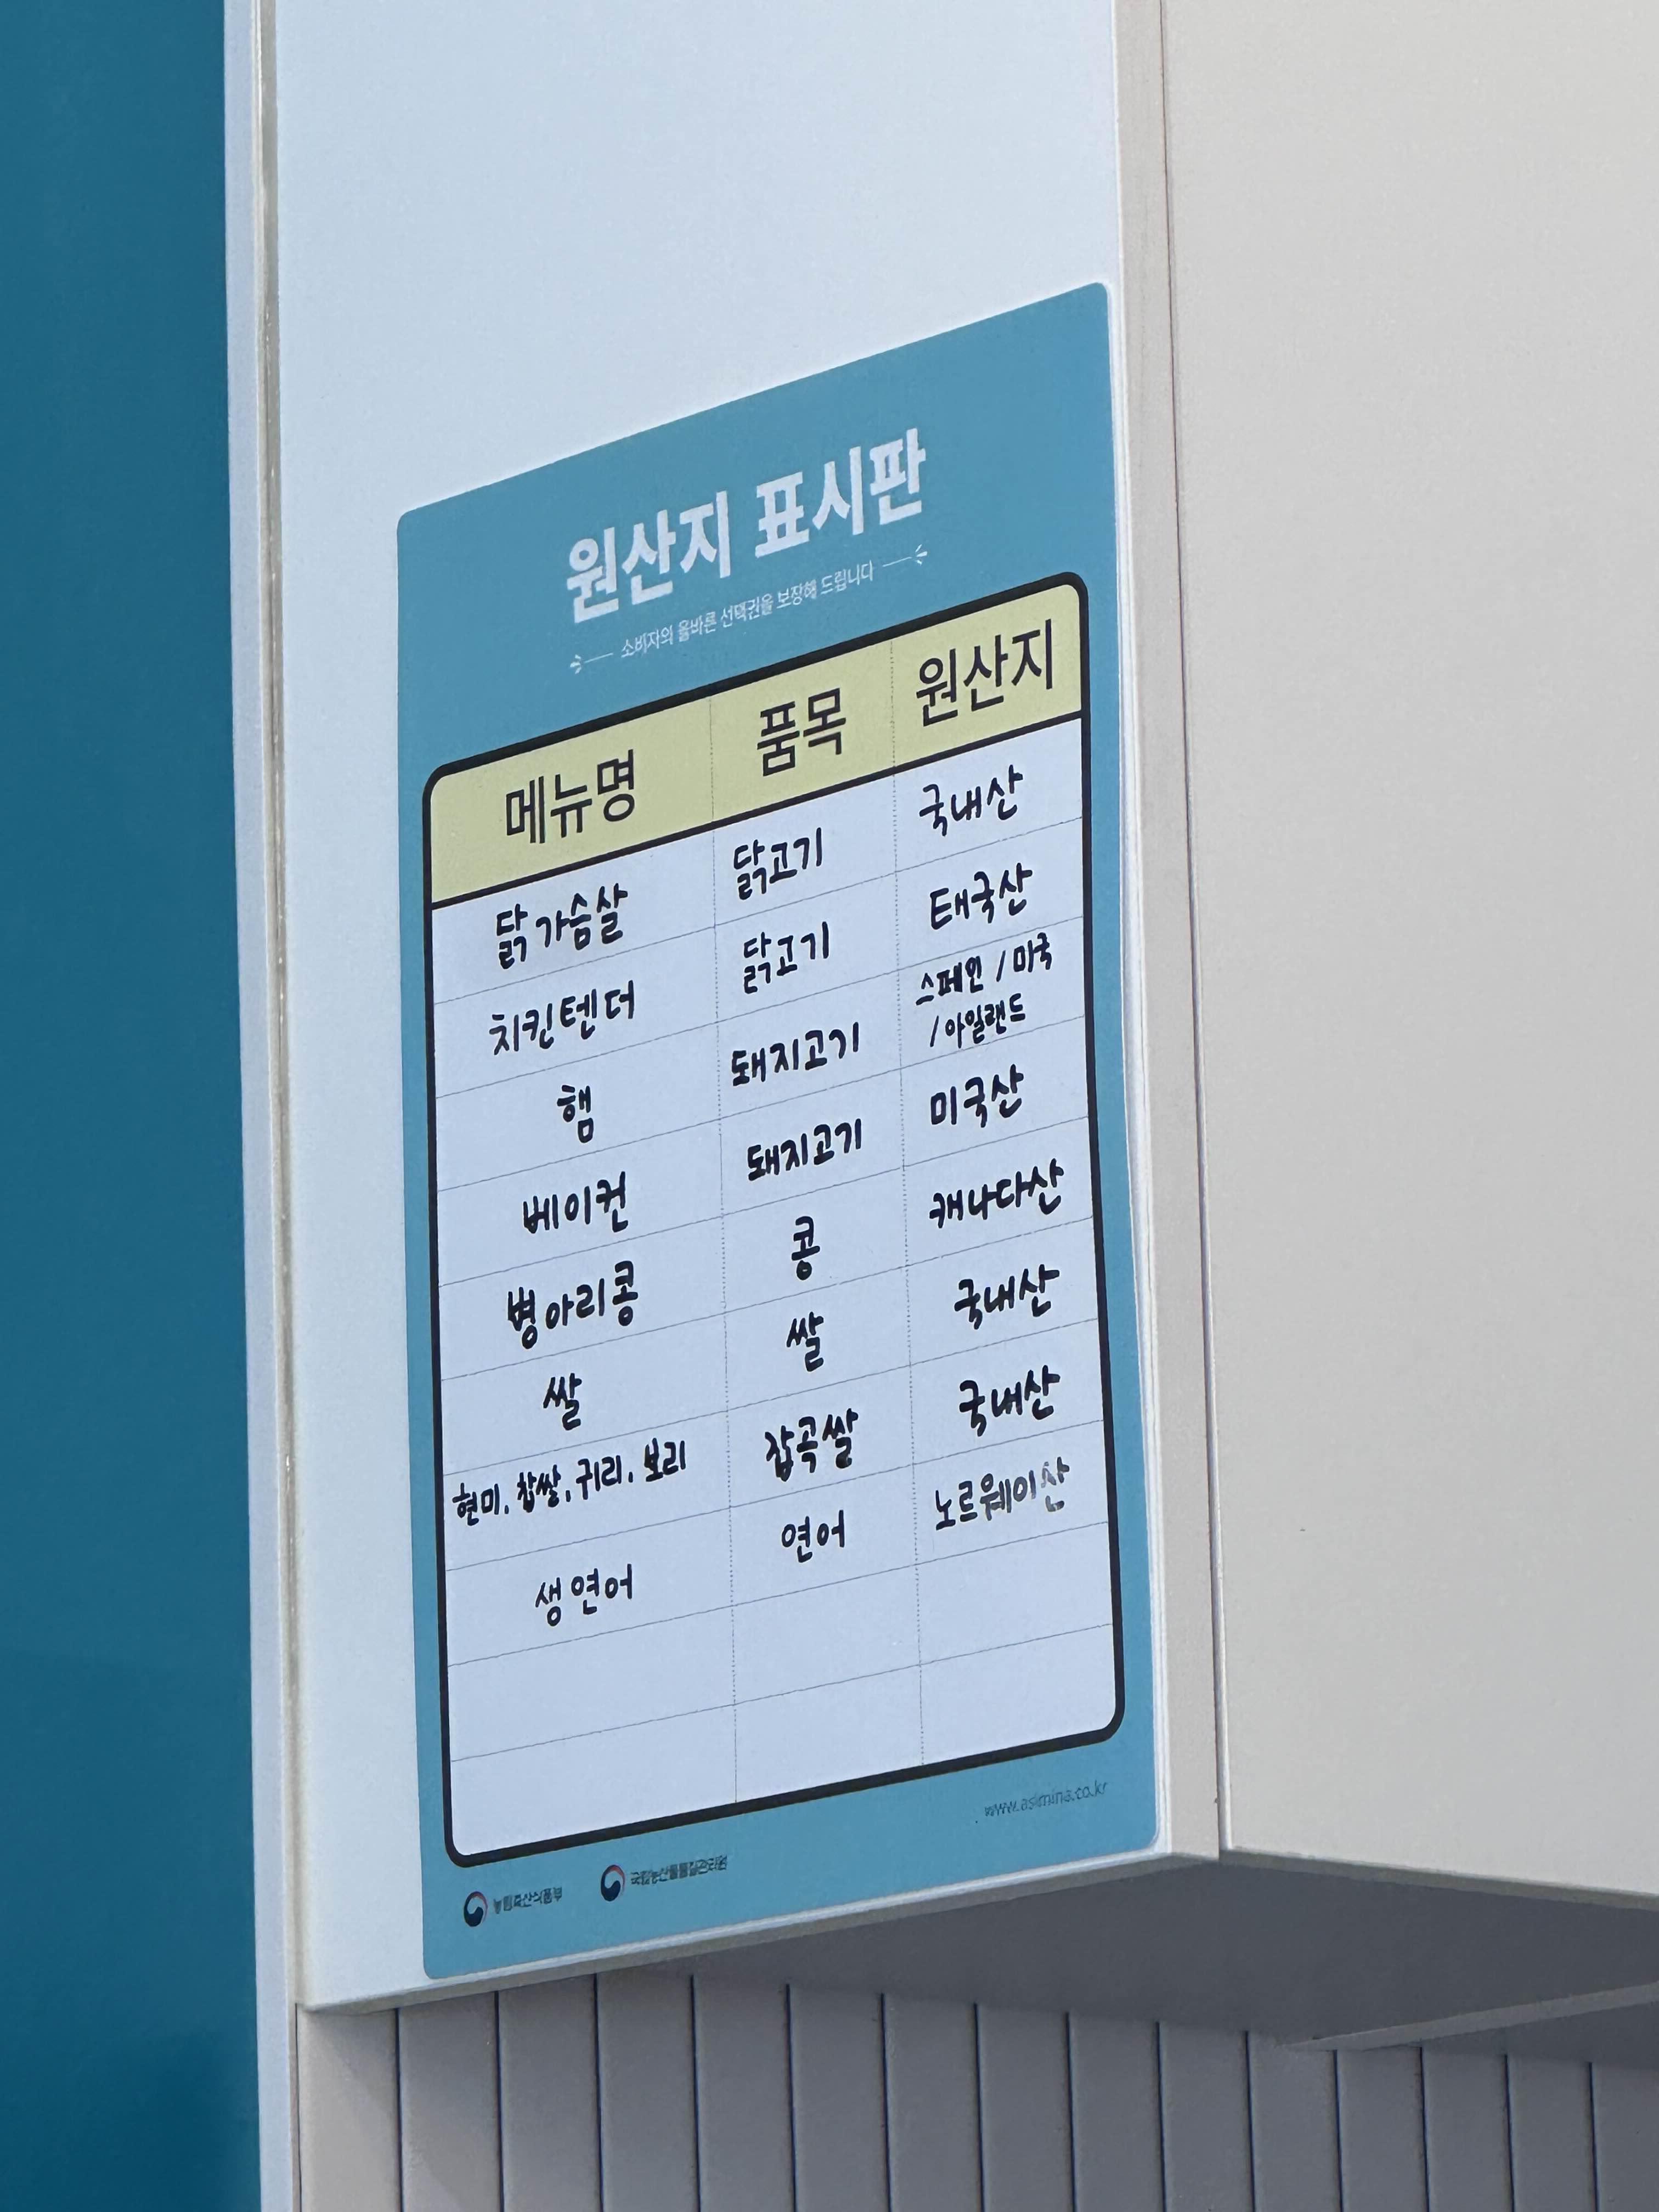 원산지 표시판
소비자의 올바른 선택권을 보장해 드립니다
메뉴명 품목 원산지
닭가슴살 닭고기 국내산
치킨텐더 닭고기 태국산
햄 돼지고기 스페인 / 미국
/ 아일랜드
베이컨 돼지고기 미국산
병아리콩 콩 캐나다산
쌀 쌀 국내산
현미, 찹쌀, 귀리, 보리 잡곡쌀 국내산
생연어 연어 노르웨이산
www.asimina.co.kr
농림축산식품부 국립농산물품질관리원